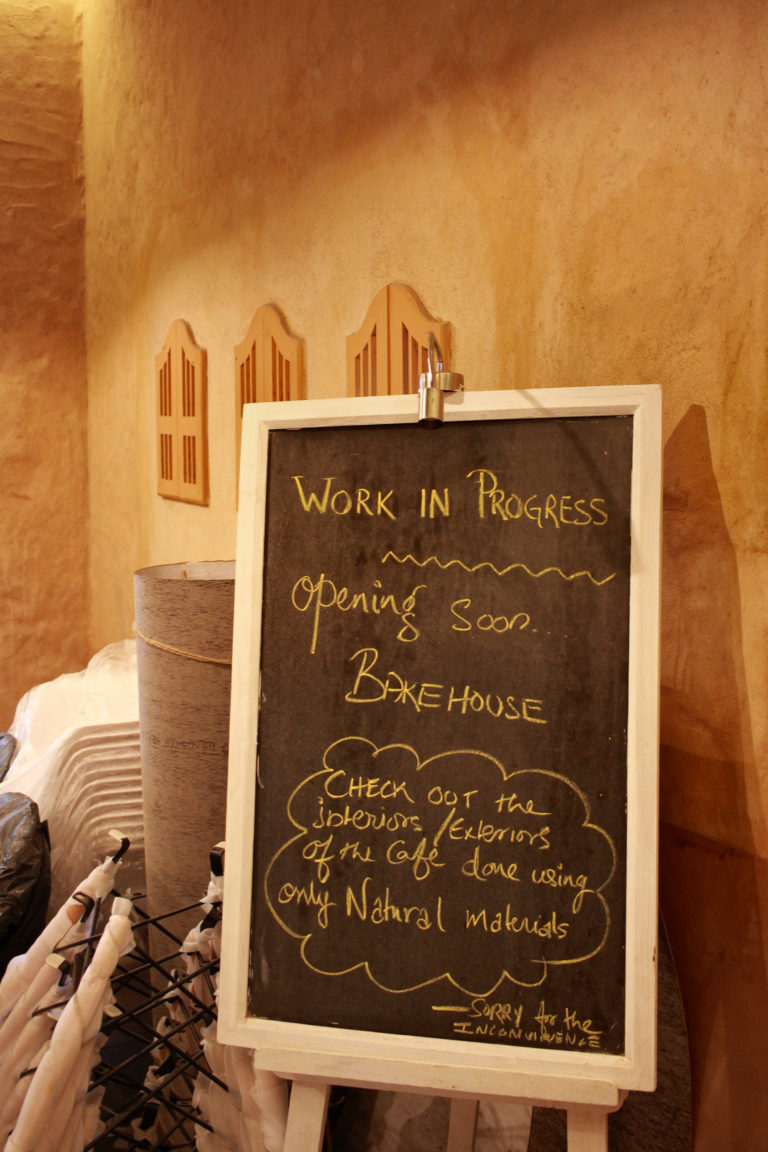 WORK IN PROGRESS
Opening Soon..
BAKEHOUSE
CHECK OUT the
interiors/EXteriors
of the Café done using
only Natural materials
— SORRY for the
INCONVIVENCE